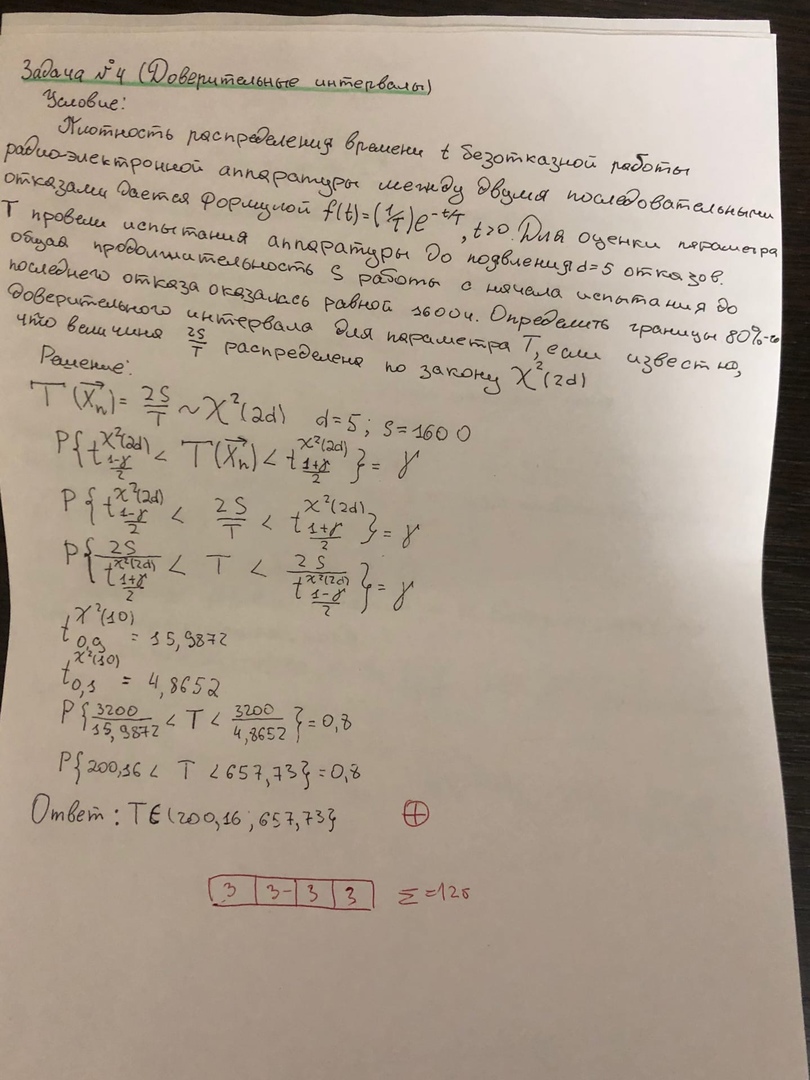 Задача №4 (Доверительные интервалы)
Условие:
Плотность распределения времени t безотказной работы
радио-электронной аппаратуры между двумя последовательными
отказами дается формулой f(t)=(1/T)e^{-t/T}, t>0. Для оценки параметра
T провели испытания аппаратуры до появления d=5 отказов.
общая продолжительность S работы с начала испытания до
последнего отказа оказалась равной 1600ч. Определить границы 80%-го
доверительного интервала для параметра T, если известно,
что величина 2S/T распределена по закону χ²(2d)
Решение:
T(X⃗_n) = 2S/T ~ χ²(2d) d=5; S=1600
P{t^{χ²(2d)}_{(1-γ)/2} < T(X⃗_n) < t^{χ²(2d)}_{(1+γ)/2}} = γ
P{t^{χ²(2d)}_{(1-γ)/2} < 2S/T < t^{χ²(2d)}_{(1+γ)/2}} = γ
P{2S/t^{χ²(2d)}_{(1+γ)/2} < T < 2S/t^{χ²(2d)}_{(1-γ)/2}} = γ
t^{χ²(10)}_{0,9} = 15,9872
t^{χ²(10)}_{0,1} = 4,8652
P{3200/15,9872 < T < 3200/4,8652} = 0,8
P{200,16 < T < 657,73} = 0,8
Ответ: T∈(200,16; 657,73}
3 3- 3 3 Σ=12б